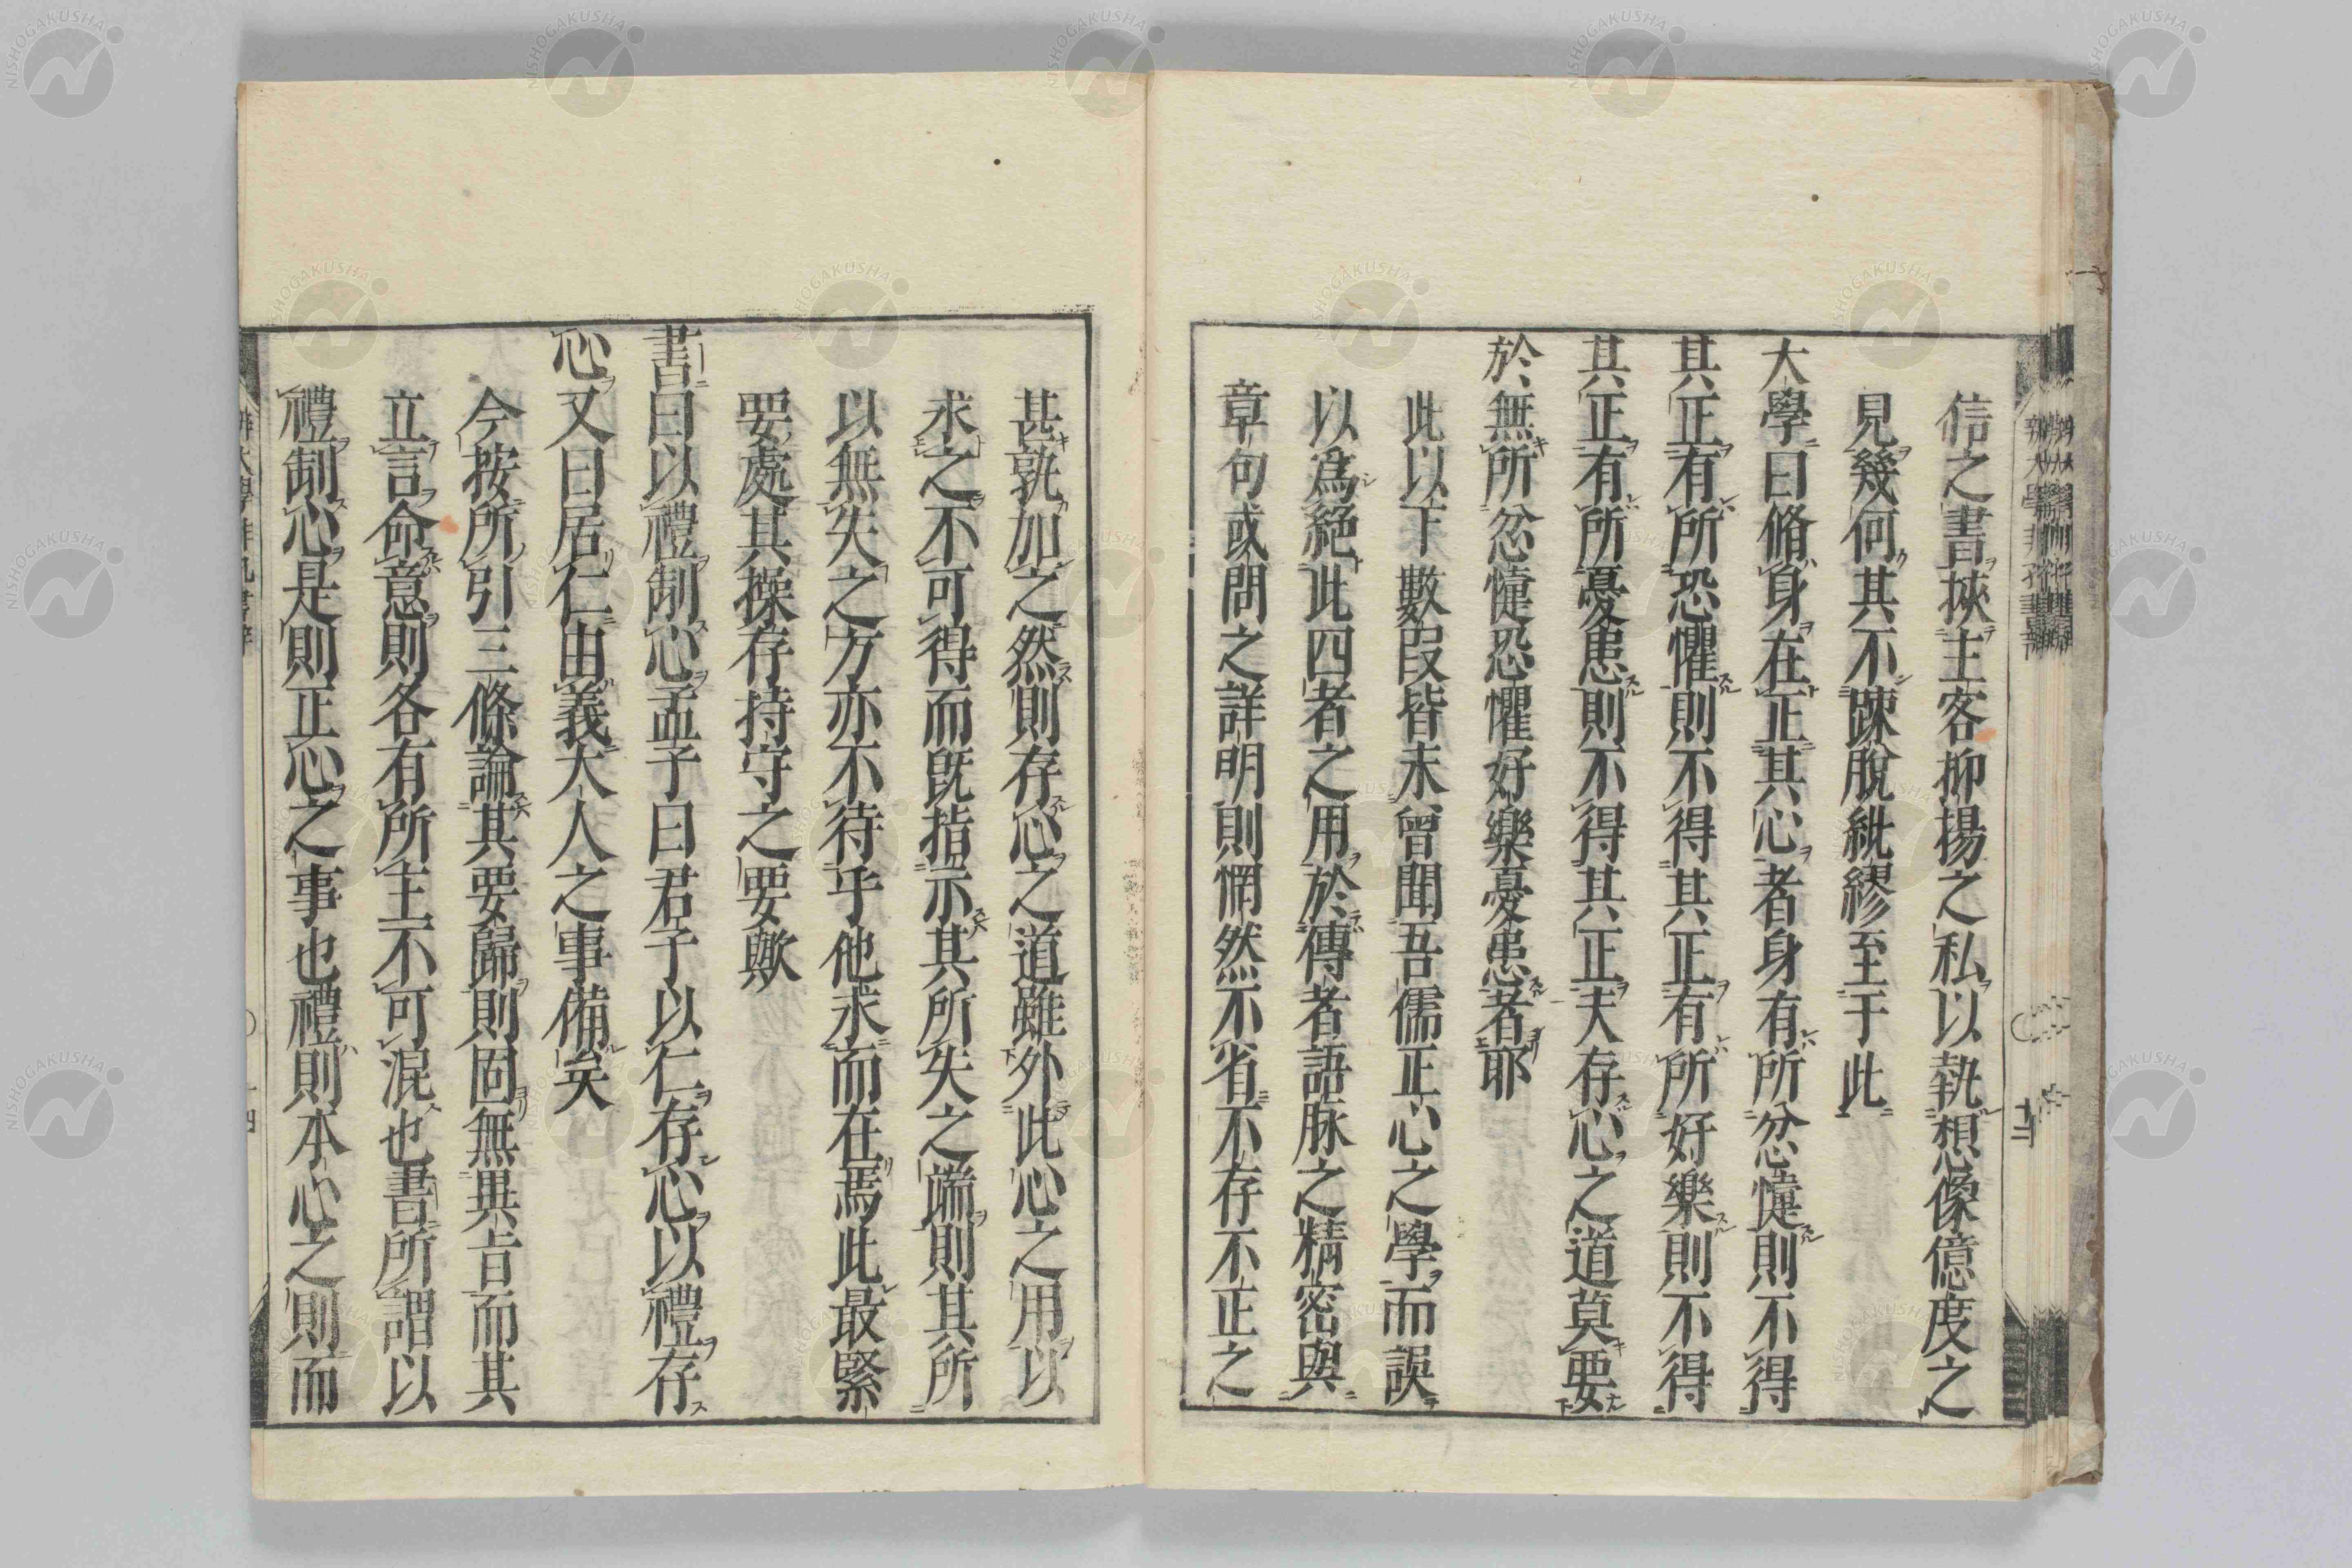 信之書挾主客抑揚之私以執想像億度之
見幾何其不踈脫紕繆至于此
大學曰脩身在正其心者身有所忿懥則不得
其正有所恐懼則不得其正有所好樂則不得
其正有所憂患則不得其正夫存心之道莫要
於無所忿懥恐懼好樂憂患者耶
此以下數段皆未曾聞吾儒正心之學而誤
以爲絕此四者之用於傳者語脉之精密與
章句或問之詳明則惘然不省不存不正之
甚孰加之然則存心之道雖外此心之用以
求之不可得而旣指示其所失之端則其所
以無失之方亦不待乎他求而在焉此最緊
要處其操存持守之要歟
書曰以禮制心孟子曰君子以仁存心以禮存
心又曰居仁由義大人之事備矣
今按所引三條論其要歸則固無異旨而其
立言命意則各有所主不可混也書所謂以
禮制心是則正心之事也禮則本心之則而
NISHOGAKUSHA